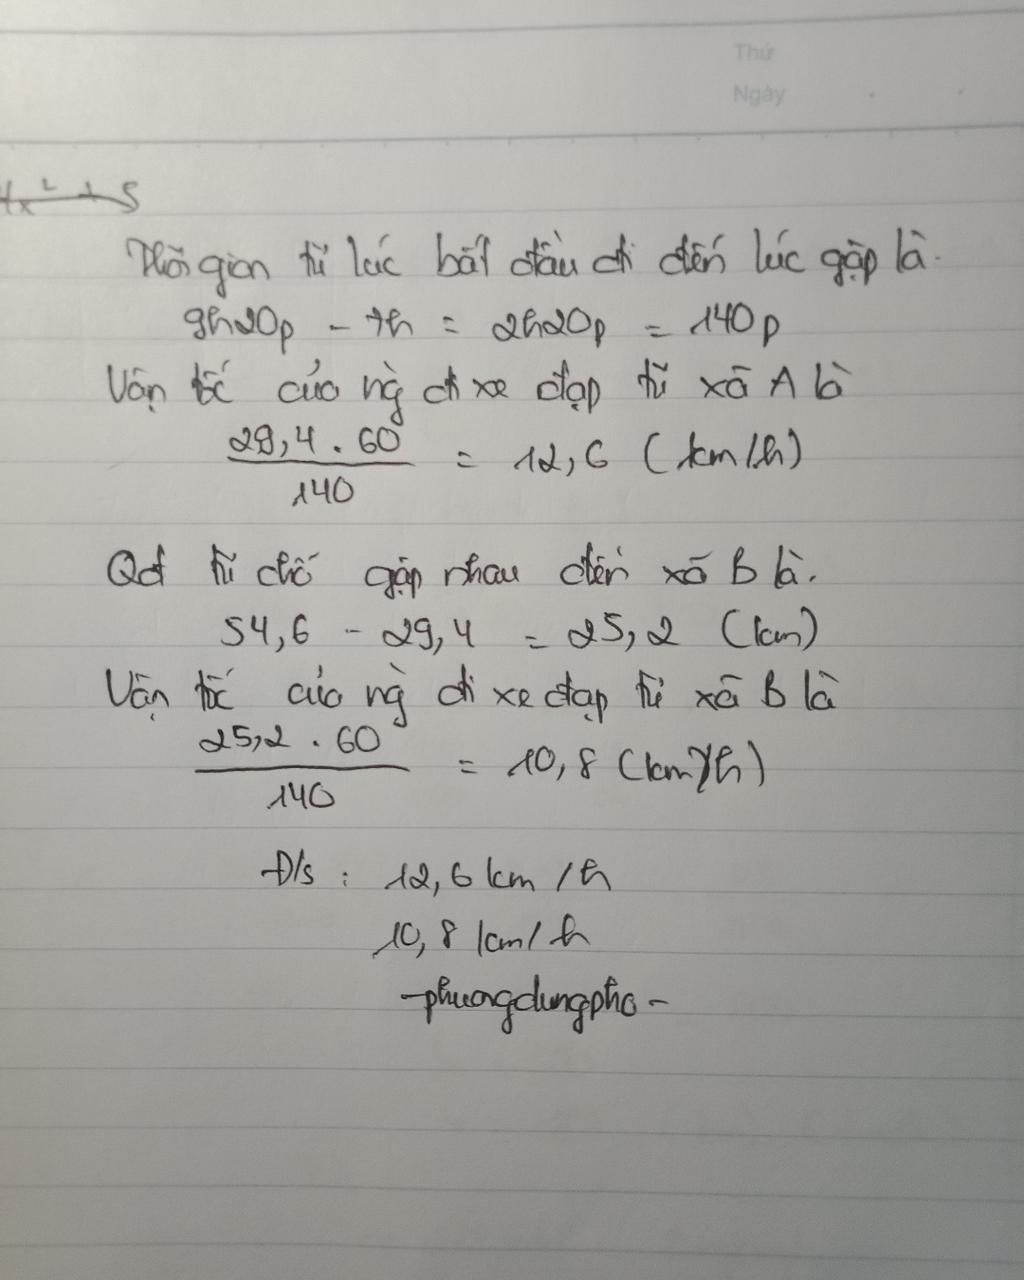 Thứ
Ngày
4x² + 5
Thời gian từ lúc bắt đầu đi đến lúc gặp là.
9h20p - 7h = 2h20p = 140p
Vận tốc của ng` đi xe đạp từ xã A là
29,4 . 60 / 140 = 12,6 (km/h)
Qđ từ chỗ gặp nhau đến xã B là.
54,6 - 29,4 = 25,2 (km)
Vận tốc của ng` đi xe đạp từ xã B là
25,2 . 60 / 140 = 10,8 (km/h)
Đ/s : 12,6 km/h
10,8 km/h
-phuongdungpho-